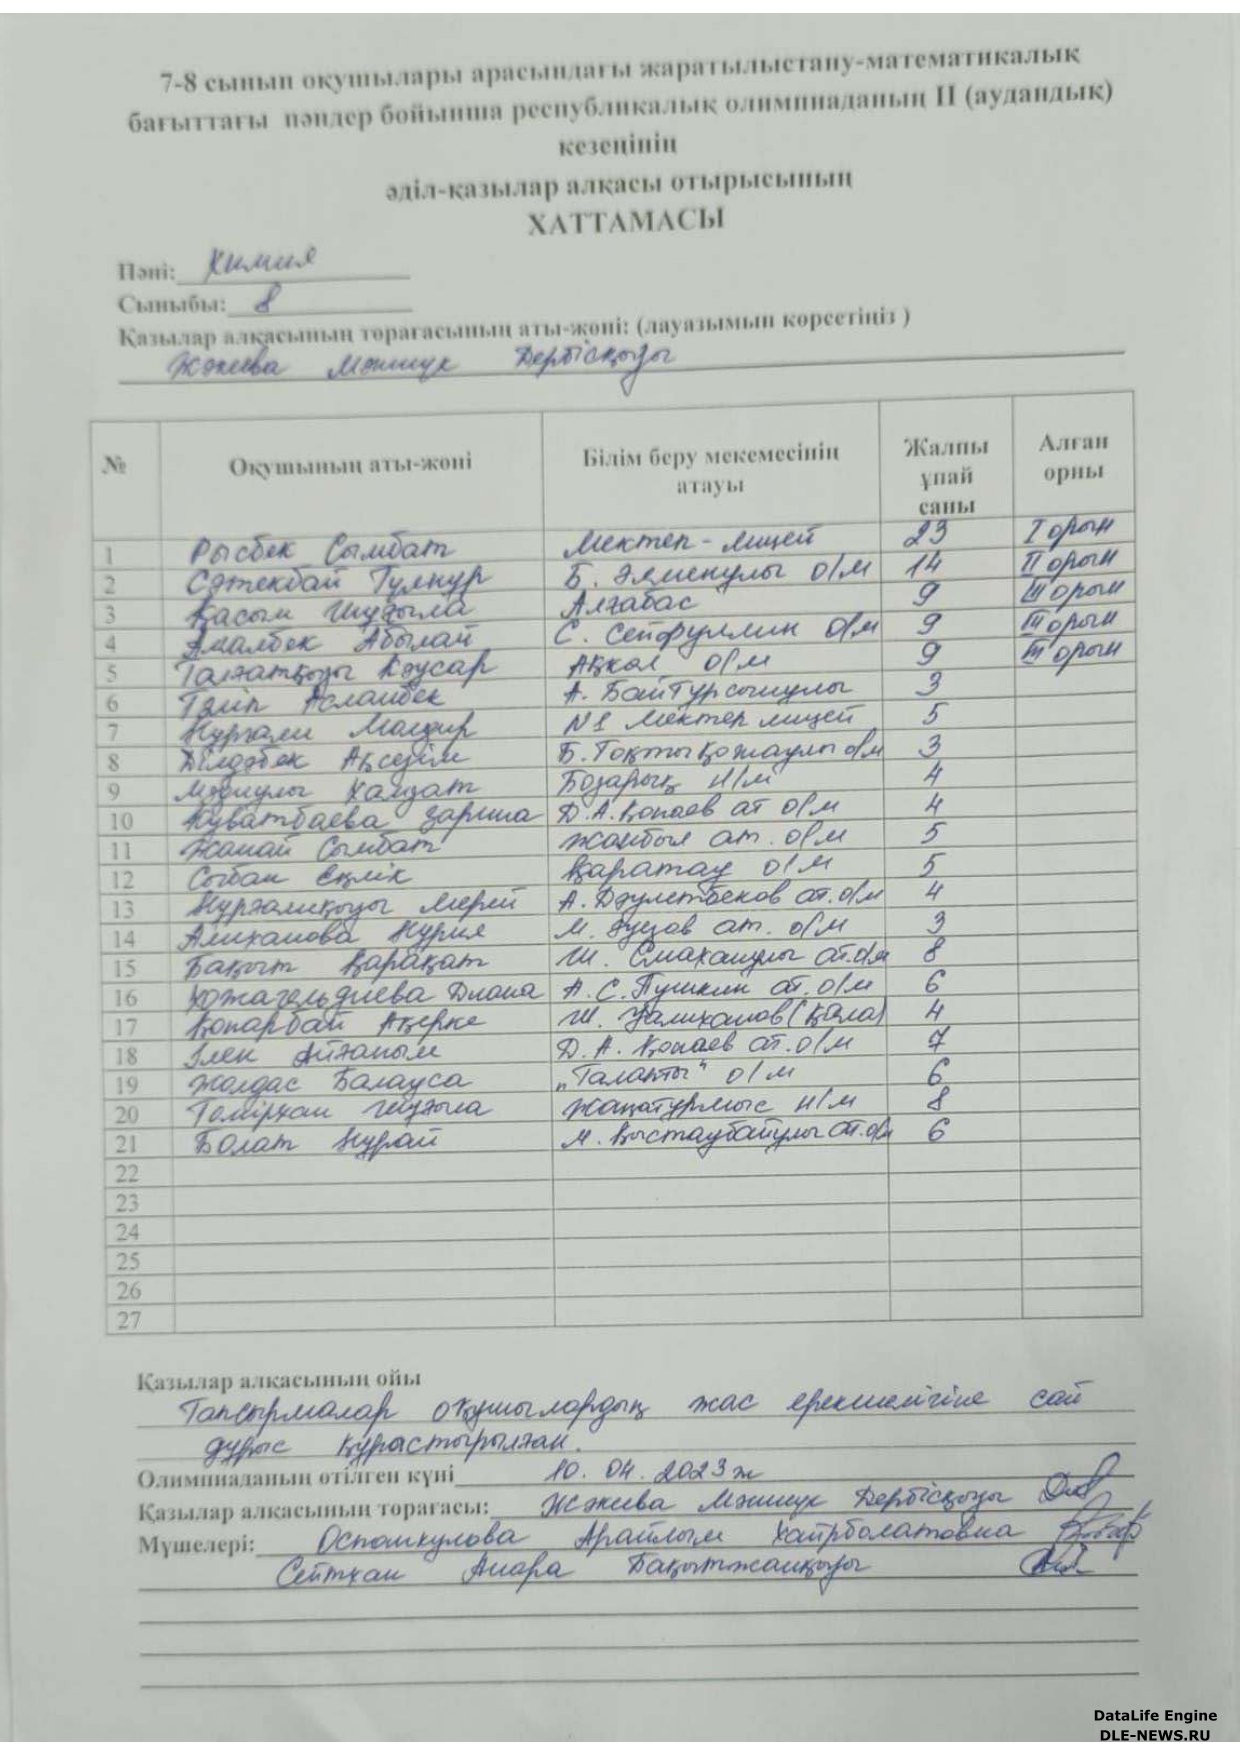 7-8 сынып оқушылары арасындағы жаратылыстану-математикалық
бағыттағы пәндер бойынша республикалық олимпиаданың II (аудандық)
кезеңінің
әділ-қазылар алқасы отырысының
ХАТТАМАСЫ
Пәні: Химия
Сыныбы: 8
Қазылар алқасының төрағасының аты-жөні: (лауазымын көрсетіңіз )
Жәкева Мәншук Дербісқызы
№ Оқушының аты-жөні Білім беру мекемесінің атауы Жалпы ұпай саны Алған орны
1 Рысбек Сымбат Мектеп-лицей 23 I орын
2 Сәтекбай Гүлнұр Б. Әлменұлы о/м 14 II орын
3 Қасым Шұғыла Алғабас 9 III орын
4 Амалбек Абылай С. Сейфуллин о/м 9 III орын
5 Талғатқызы Кәусар Ақкөл о/м 9 III орын
6 Тәліп Асланбек А. Байтұрсынұлы 3
7 Нұрғали Мөлдір №1 Мектеп лицей 5
8 Ділдәбек Ақсезім Б. Тоқтықожаұлы о/м 3
9 Хамзат Бозарық н/м 4
10 Қуватбаева Зарина Д.А. Қонаев ат о/м 4
11 Жанай Сымбат Жамбыл ат. о/м 5
12 Сыбан Еңлік Қаратау о/м 5
13 Нұрғалиқызы Мерей А. Дәулетбеков ат. о/м 4
14 Алиханова Нурия М. Әуезов ат. о/м 3
15 Бақыт Қарақат Ш. Смаханұлы ат.о/м 8
16 Қожагельдиева Диана А. С. Пушкин ат. о/м 6
17 Қонарбай Ақерке Ш. Уәлиханов (қала) 4
18 Ілек Айғаным Д. А. Қонаев ат. о/м 7
19 Жолдас Балауса „Талапты" о/м 6
20 Темірхан Шұғыла Жаңатұрмыс н/м 8
21 Болат Нұрай М. Қыстаубайұлы ат. о/м 6
22
23
24
25
26
27
Қазылар алқасының ойы
Тапсырмалар оқушылардың жас ерекшелігіне сай
дұрыс құрастырылған.
Олимпиаданың өтілген күні 10. 04. 2023 ж
Қазылар алқасының төрағасы: Жәкева Мәншук Дербісқызы
Мүшелері: Оспанкулова Арайлым Хайрболатовна
Сейтхан Анара Бақытжанқызы
DataLife Engine
DLE-NEWS.RU